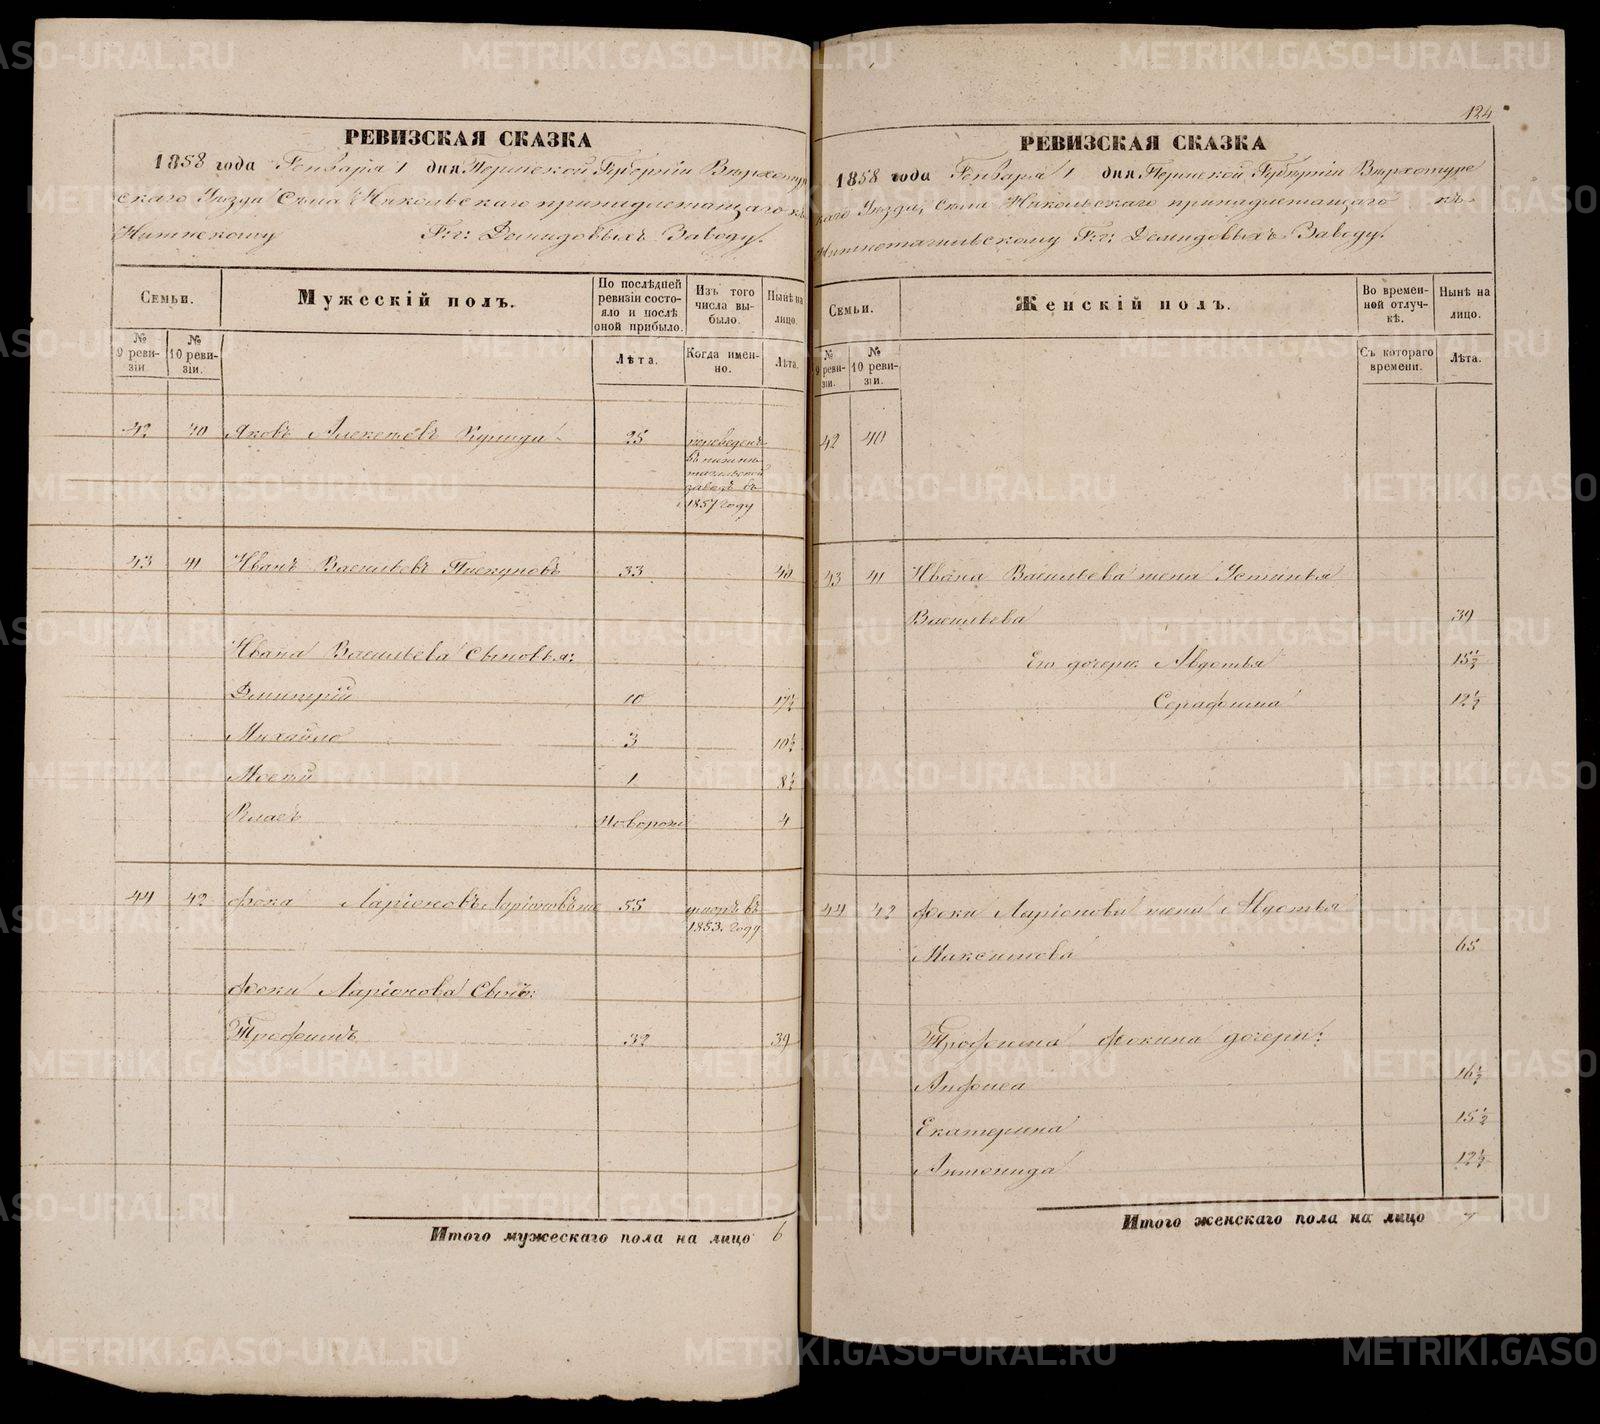 РЕВИЗСКАЯ СКАЗКА
1858 года Генваря 1 дня Пермской Губерніи Верхотур
скаго Уезда Села Никольскаго принадлежащаго къ
Г:г: Демидовыхъ Заводу.
Семьи.
Мужескій полъ.
По последней ревизіи состо-
яло и после оной прибыло.
Изъ того числа вы-
было.
Ныне на лицо.
№ 9 реви-
зіи.
№ 10 реви-
зіи.
Лѣта.
Когда имен-
но.
Лѣта.
42 40 Яковъ Алексеевъ 25 переведенъ
въ нижне
тагильской
заводъ въ
1857 году
43 41 Иванъ Васильевъ Пискуновъ 33 40
Ивана Васильева Сыновья:
Дмитрій 10 17½
Михайло 3 10½
Мосей 1 8½
Власъ новорож 4
44 42 Фока Ларіоновъ Ларіоновъ же 55 умеръ въ
1853. году
Фоки Ларіонова Сынъ:
Трофимъ 32 39
Итого мужескаго пола на лицо 6
124
РЕВИЗСКАЯ СКАЗКА
1858 года Генваря 1 дня Пермской Губерніи Верхотурс
каго Уезда, Села Никольскаго принадлежащаго къ
Нижнетагильскому Г:г: Демидовыхъ Заводу.
Семьи.
Женскій полъ.
Во времен-
ной отлуч-
кѣ.
Нынѣ на лицо.
№ 9 реви-
зіи.
№ 10 реви-
зіи.
Съ котораго времени.
Лѣта.
42 40
43 41 Ивана Васильева жена Устинья
Васильева 39
Его дочери: Авдотья 15½
Серафима 12½
44 42 Фоки Ларіонова жена Авдотья
Максимова 65
Трофима Фокина дочери:
Анфиса 16½
Екатерина 15½
Антонида 12½
Итого женскаго пола на лицо 7
METRIKI.GASO-URAL.RU